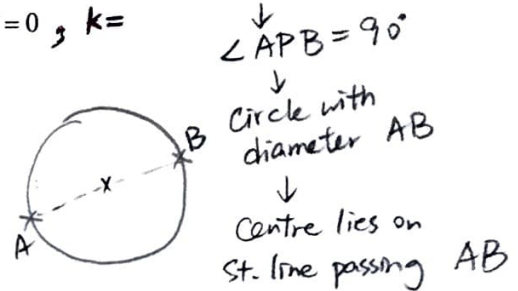 =0 , k=
↓
∠APB = 90°
↓
Circle with
diameter AB
↓
Centre lies on
St. line passing AB
B
A